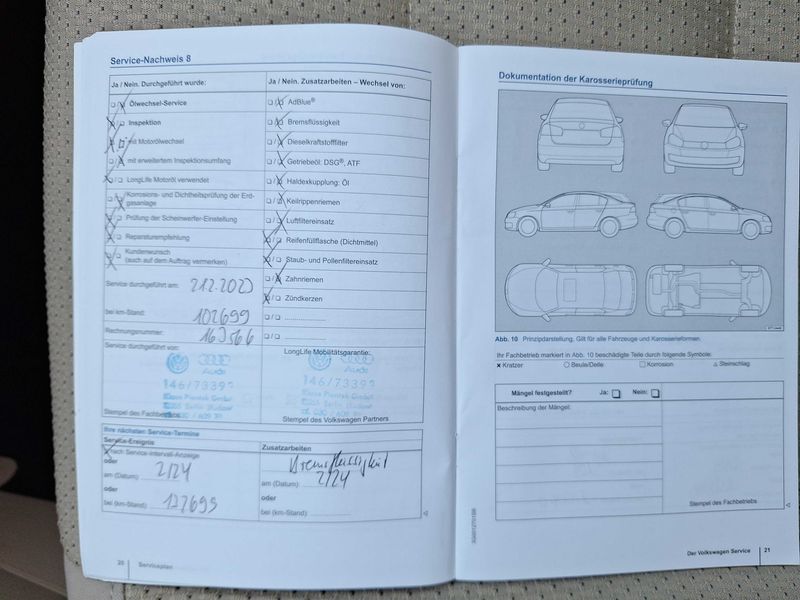 Service-Nachweis 8
Ja / Nein. Durchgeführt wurde:
Ölwechsel-Service
Inspektion
mit Motorölwechsel
mit erweitertem Inspektionsumfang
LongLife Motoröl verwendet
Korrosions- und Dichtheitsprüfung der Erd-
gasanlage
Prüfung der Scheinwerfer-Einstellung
Reparaturempfehlung
Kundenwunsch
(auch auf dem Auftrag vermerken)
Service durchgeführt am:
bei km-Stand: 102699
Rechnungsnummer: 163566
Service durchgeführt von:
Audi
146/7339
Stempel des Fachbetriebs
Ja / Nein. Zusatzarbeiten – Wechsel von:
AdBlue®
Bremsflüssigkeit
Dieselkraftstofffilter
Getriebeöl: DSG®, ATF
Haldexkupplung: Öl
Keilrippenriemen
Luftfiltereinsatz
Reifenfüllflasche (Dichtmittel)
Staub- und Pollenfiltereinsatz
Zahnriemen
Zündkerzen
LongLife Mobilitätsgarantie:
Audi
146/7339
Stempel des Volkswagen Partners
Ihre nächsten Service-Termine
Service-Ereignis
nach Service-Intervall-Anzeige
oder
am (Datum): 2/24
oder
bei (km-Stand):
Zusatzarbeiten
Bremsflüssigkeit
am (Datum): 2/24
oder
bei (km-Stand):
20 Serviceplan
Dokumentation der Karosserieprüfung
Abb. 10 Prinzipdarstellung. Gilt für alle Fahrzeuge und Karosserieformen.
Ihr Fachbetrieb markiert in Abb. 10 beschädigte Teile durch folgende Symbole:
x Kratzer ○ Beule/Delle □ Korrosion △ Steinschlag
Mängel festgestellt? Ja: Nein:
Beschreibung der Mängel:
Stempel des Fachbetriebs
Der Volkswagen Service 21